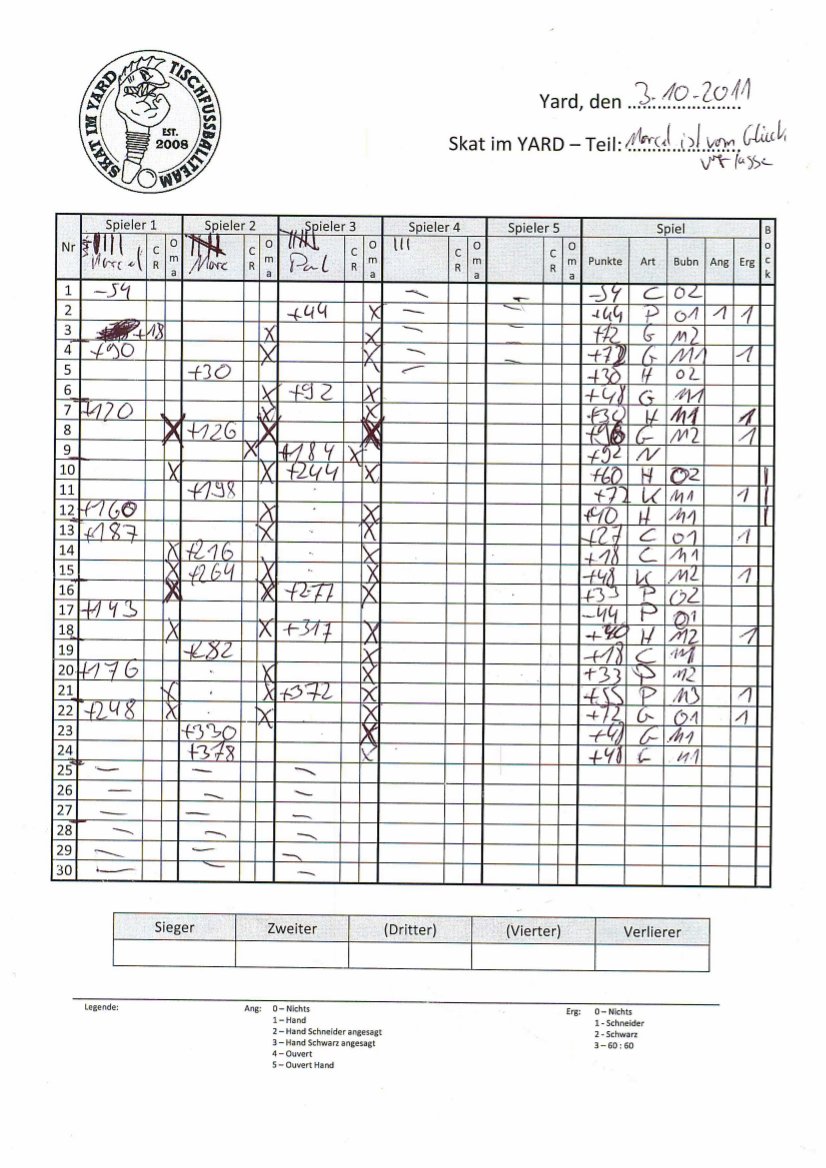 SKAT IM YARD TISCHFUSSBALLTEAM
EST. 2008
Yard, den 3.10.2011
Skat im YARD – Teil: Marcel ist vom Glück
Spieler 1 Spieler 2 Spieler 3 Spieler 4 Spieler 5 Spiel Bock
Nr Marcel CR Oma Marc CR Oma Paul CR Oma CR Oma CR Oma Punkte Art Bubn Ang Erg
1 -54 -54 C O2
2 +44 X +44 P O1 1 1
3 +18 X X +72 G M2
4 +90 X X +72 G M1 1
5 +30 +30 H O2
6 X +92 X +48 G M1
7 +120 X X +30 H M1 1
8 X +126 X X +96 G M2 1
9 X +184 X +92 N
10 X X +244 X +60 H O2 |
11 +198 +72 K M1 1 |
12 +160 X X +40 H M1 |
13 +187 X X +27 C O1 1
14 X +216 X +18 C M1
15 X +264 X X +48 K M2 1
16 X X +277 X +33 P O2
17 +143 -44 P O1
18 X X +317 X +40 H M2 1
19 +282 X +18 C M1
20 +176 X X +33 P M2
21 X X +372 X +55 P M3 1
22 +248 X X X +72 G O1 1
23 +330 X +48 G M1
24 +378 X +48 G M1
25 – – –
26 – – –
27 – – –
28 – – –
29 – – –
30 – – –
Sieger Zweiter (Dritter) (Vierter) Verlierer
Legende: Ang: 0 – Nichts Erg: 0 – Nichts
1 – Hand 1 - Schneider
2 – Hand Schneider angesagt 2 - Schwarz
3 – Hand Schwarz angesagt 3 – 60 : 60
4 – Ouvert
5 – Ouvert Hand